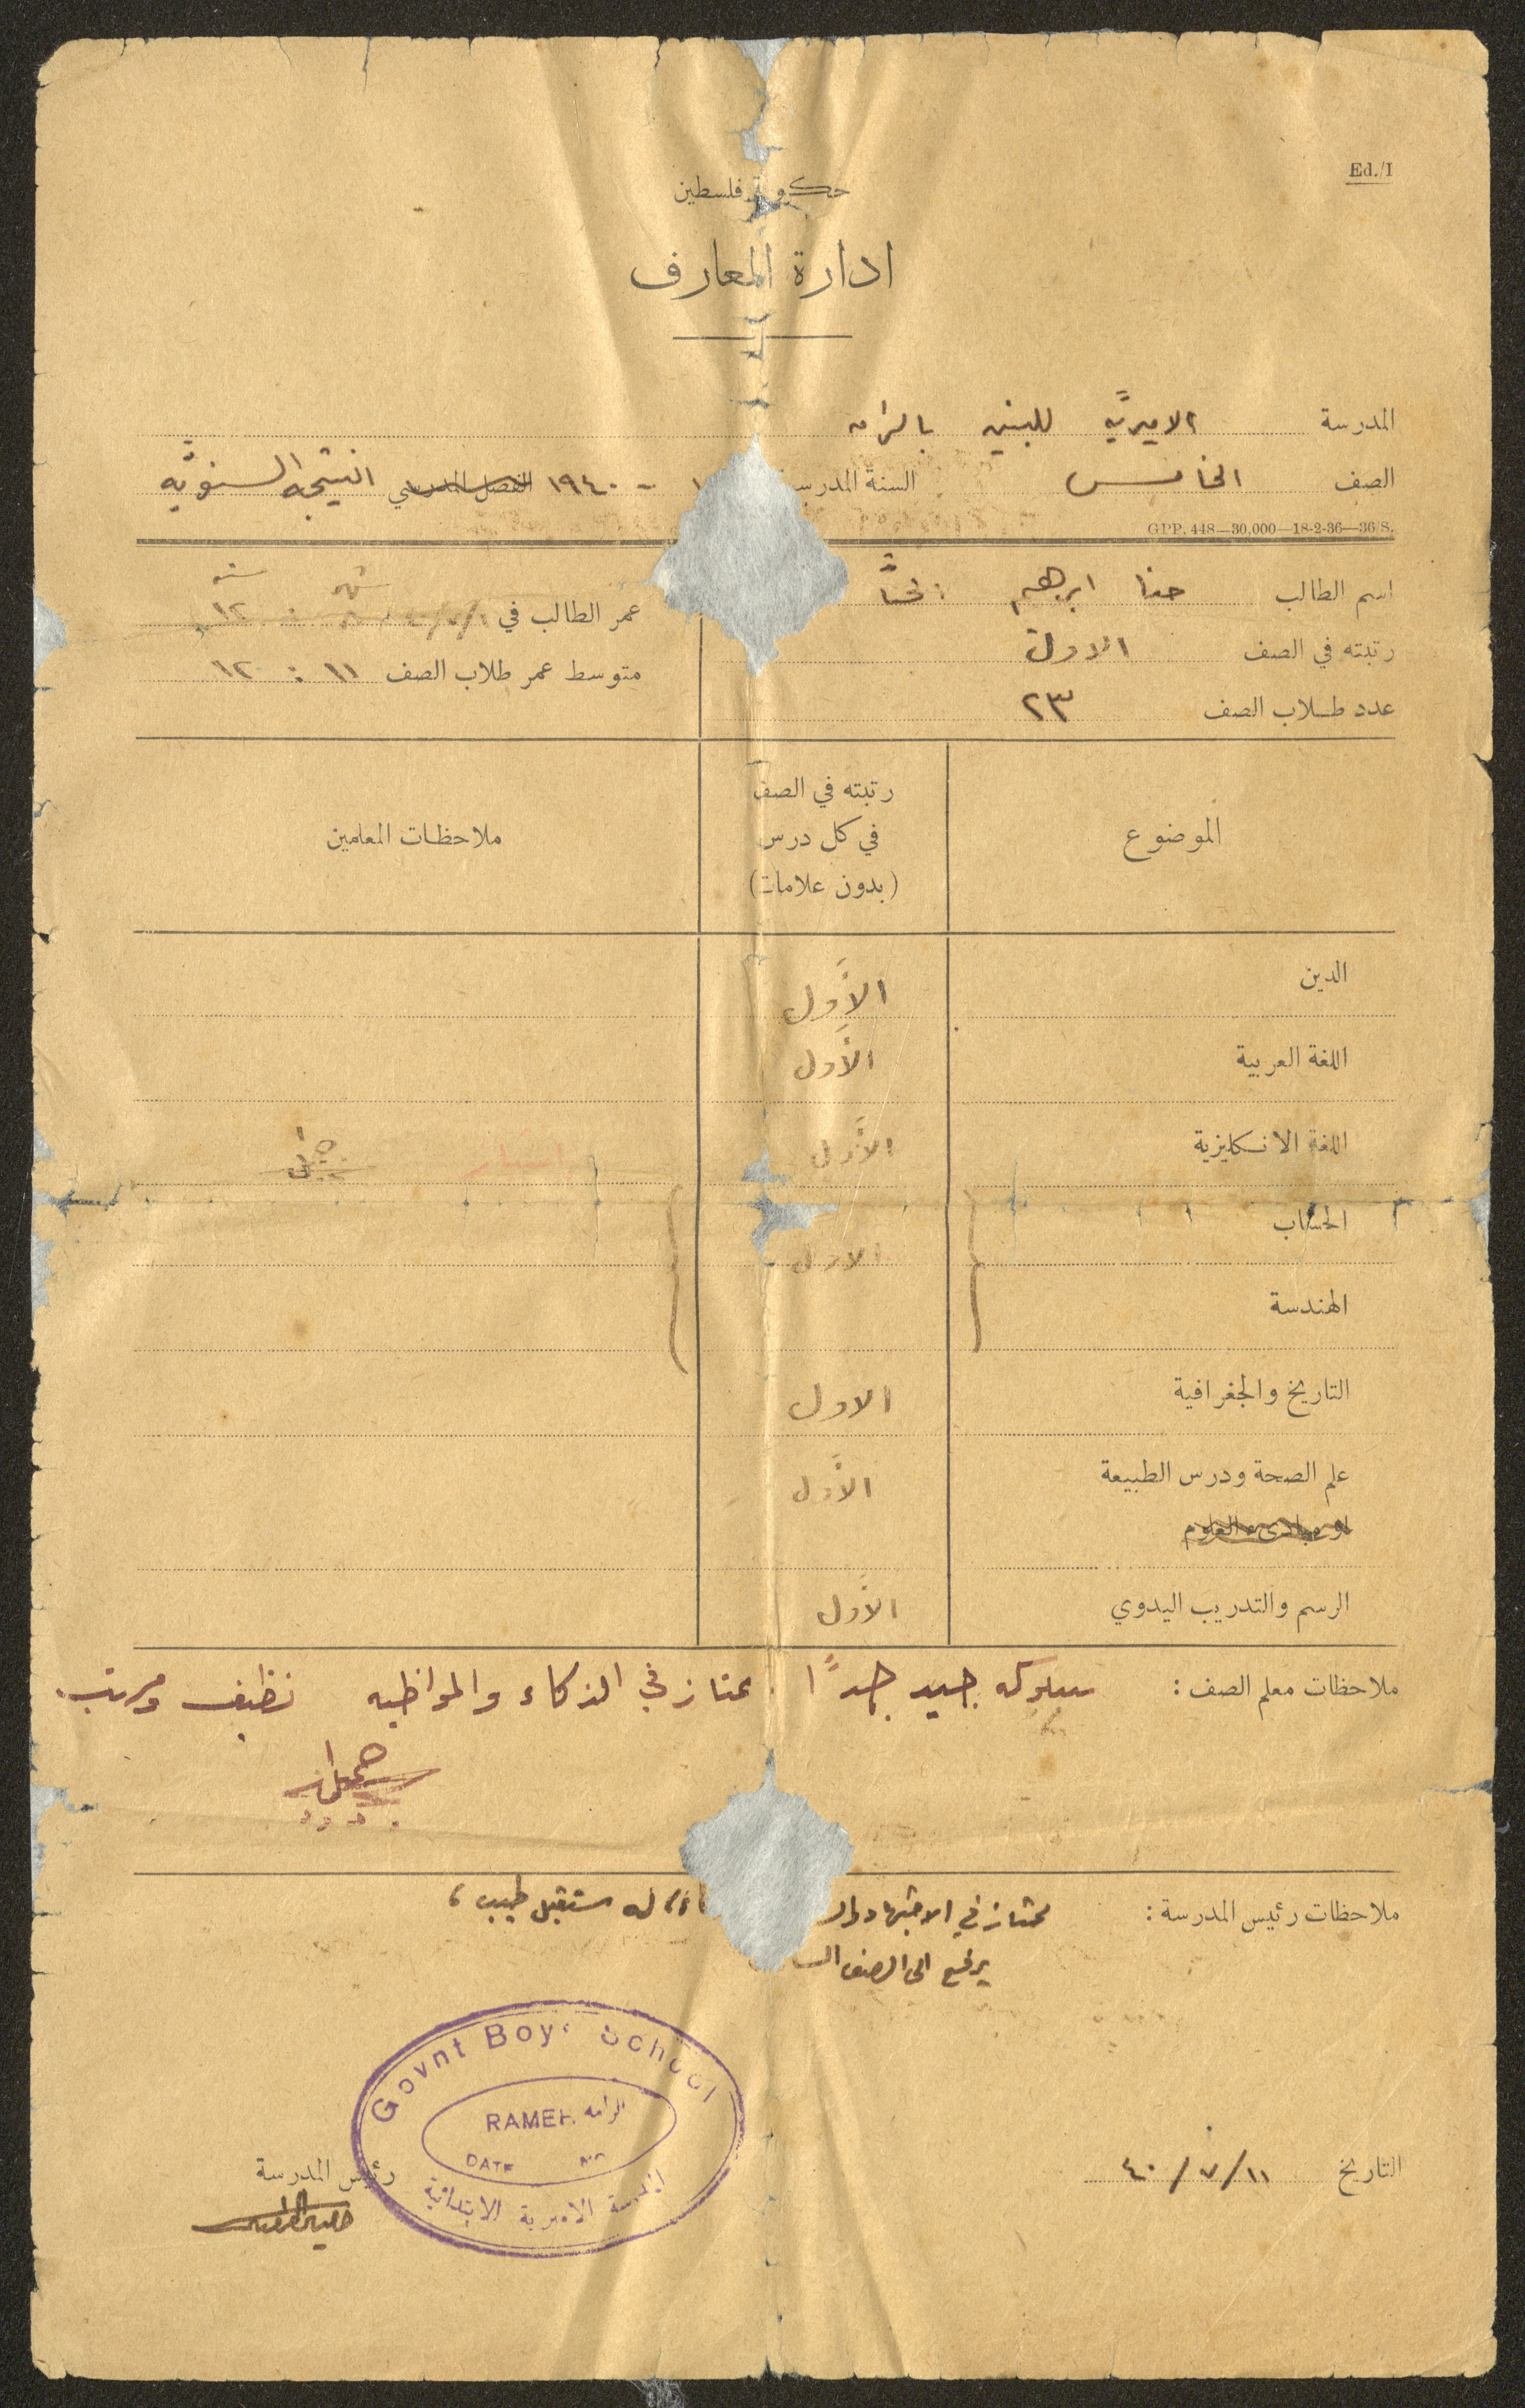 Ed./I
حكومة فلسطين
ادارة المعارف
المدرسة الاميريّه للبنين بالرامه
الصف الخامس السنة المدرسية ١ - ١٩٤٠ الفصل المدرسي النتيجه السنويّه
GPP. 448—30,000—18-2-36—36/S.
اسم الطالب حنا ابرهيم
عمر الطالب في
سنه شهر
١٢ : ٨
رتبته في الصف الاول
متوسط عمر طلاب الصف ١١ : ١٢
عدد طلاب الصف ٢٣
الموضوع
رتبته في الصف
في كل درس
(بدون علامات)
ملاحظات المعلمين
الدين الأول
اللغة العربية الأول
اللغة الانكليزية الأول
الحساب الاول
الهندسة
التاريخ والجغرافية الاول
علم الصحة ودرس الطبيعة الأول
او مبادىء العلوم
الرسم والتدريب اليدوي الأول
ملاحظات معلم الصف : سلوكه جيد جدًا . ممتاز في الذكاء والمواظبه نظيف ومرتب.
ملاحظات رئيس المدرسة : ممتاز في الاجتهاد وال له مستقبل طيب ،
يرفع الى الصف الس
Govnt Boys School
RAMEH الرامه
DATE
المدرسة الاميرية الابتدائية
التاريخ ١١/٧/٤٠
رئيس المدرسة